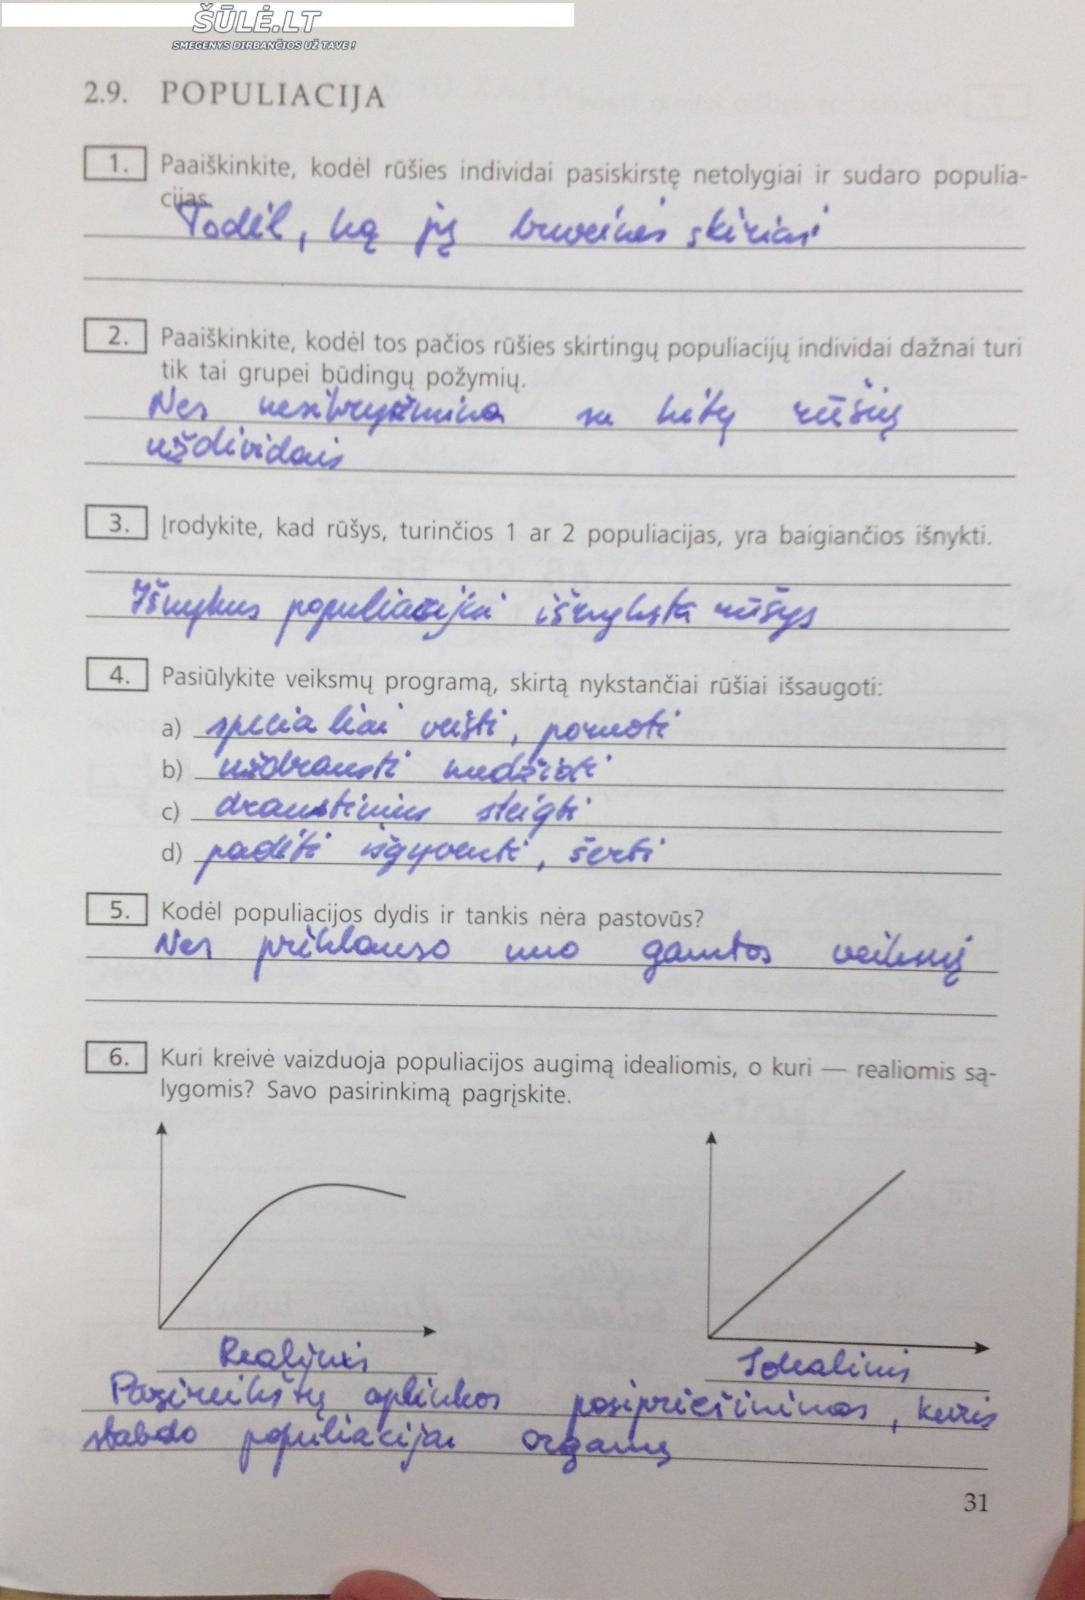 ŠŪLĖ.LT
SMEGENYS DIRBANČIOS UŽ TAVE!
2.9. POPULIACIJA
1. Paaiškinkite, kodėl rūšies individai pasiskirstę netolygiai ir sudaro populia-
cijas.
Todėl, ką jų buveinės skiriasi
2. Paaiškinkite, kodėl tos pačios rūšies skirtingų populiacijų individai dažnai turi
tik tai grupei būdingų požymių.
Nes nesikryžmina su kitų rūšių
uždividais
3. Įrodykite, kad rūšys, turinčios 1 ar 2 populiacijas, yra baigiančios išnykti.
Išnykus populiacijai išnyksta rūšys
4. Pasiūlykite veiksmų programą, skirtą nykstančiai rūšiai išsaugoti:
a) specialiai veisti, poruoti
b) uždrausti medžioti
c) draustinius steigti
d) padėti išgyventi, šerti
5. Kodėl populiacijos dydis ir tankis nėra pastovūs?
Nes priklauso nuo gamtos veiksnių
6. Kuri kreivė vaizduoja populiacijos augimą idealiomis, o kuri — realiomis są-
lygomis? Savo pasirinkimą pagrįskite.
Realiomis Idealiomis
aplinkos pasipriešinimas, kuris
stabdo populiacijai
31